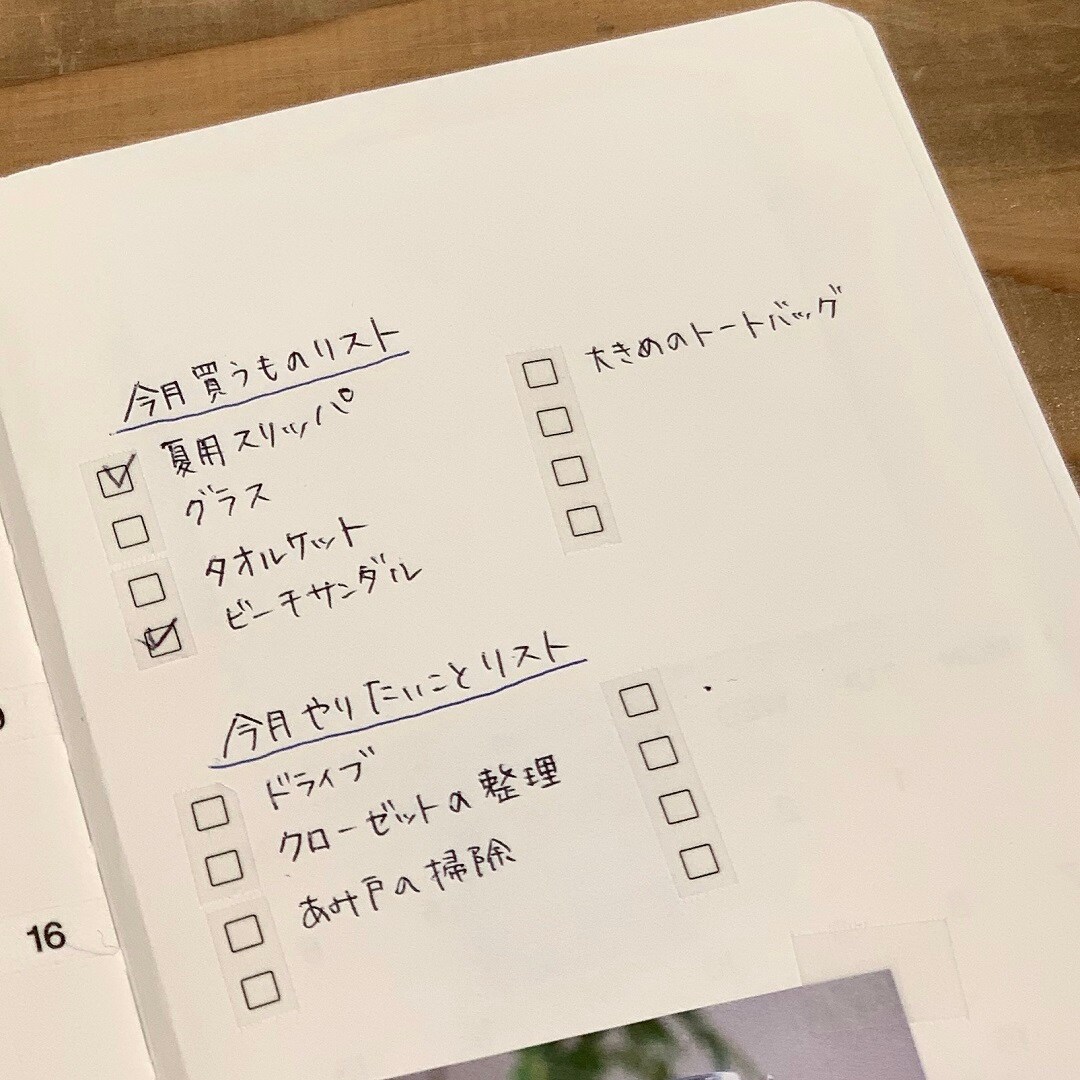 今月買うものリスト
夏用スリッパ
グラス
タオルケット
ビーチサンダル
大きめのトートバッグ
今月やりたいことリスト
ドライブ
クローゼットの整理
あみ戸の掃除
16